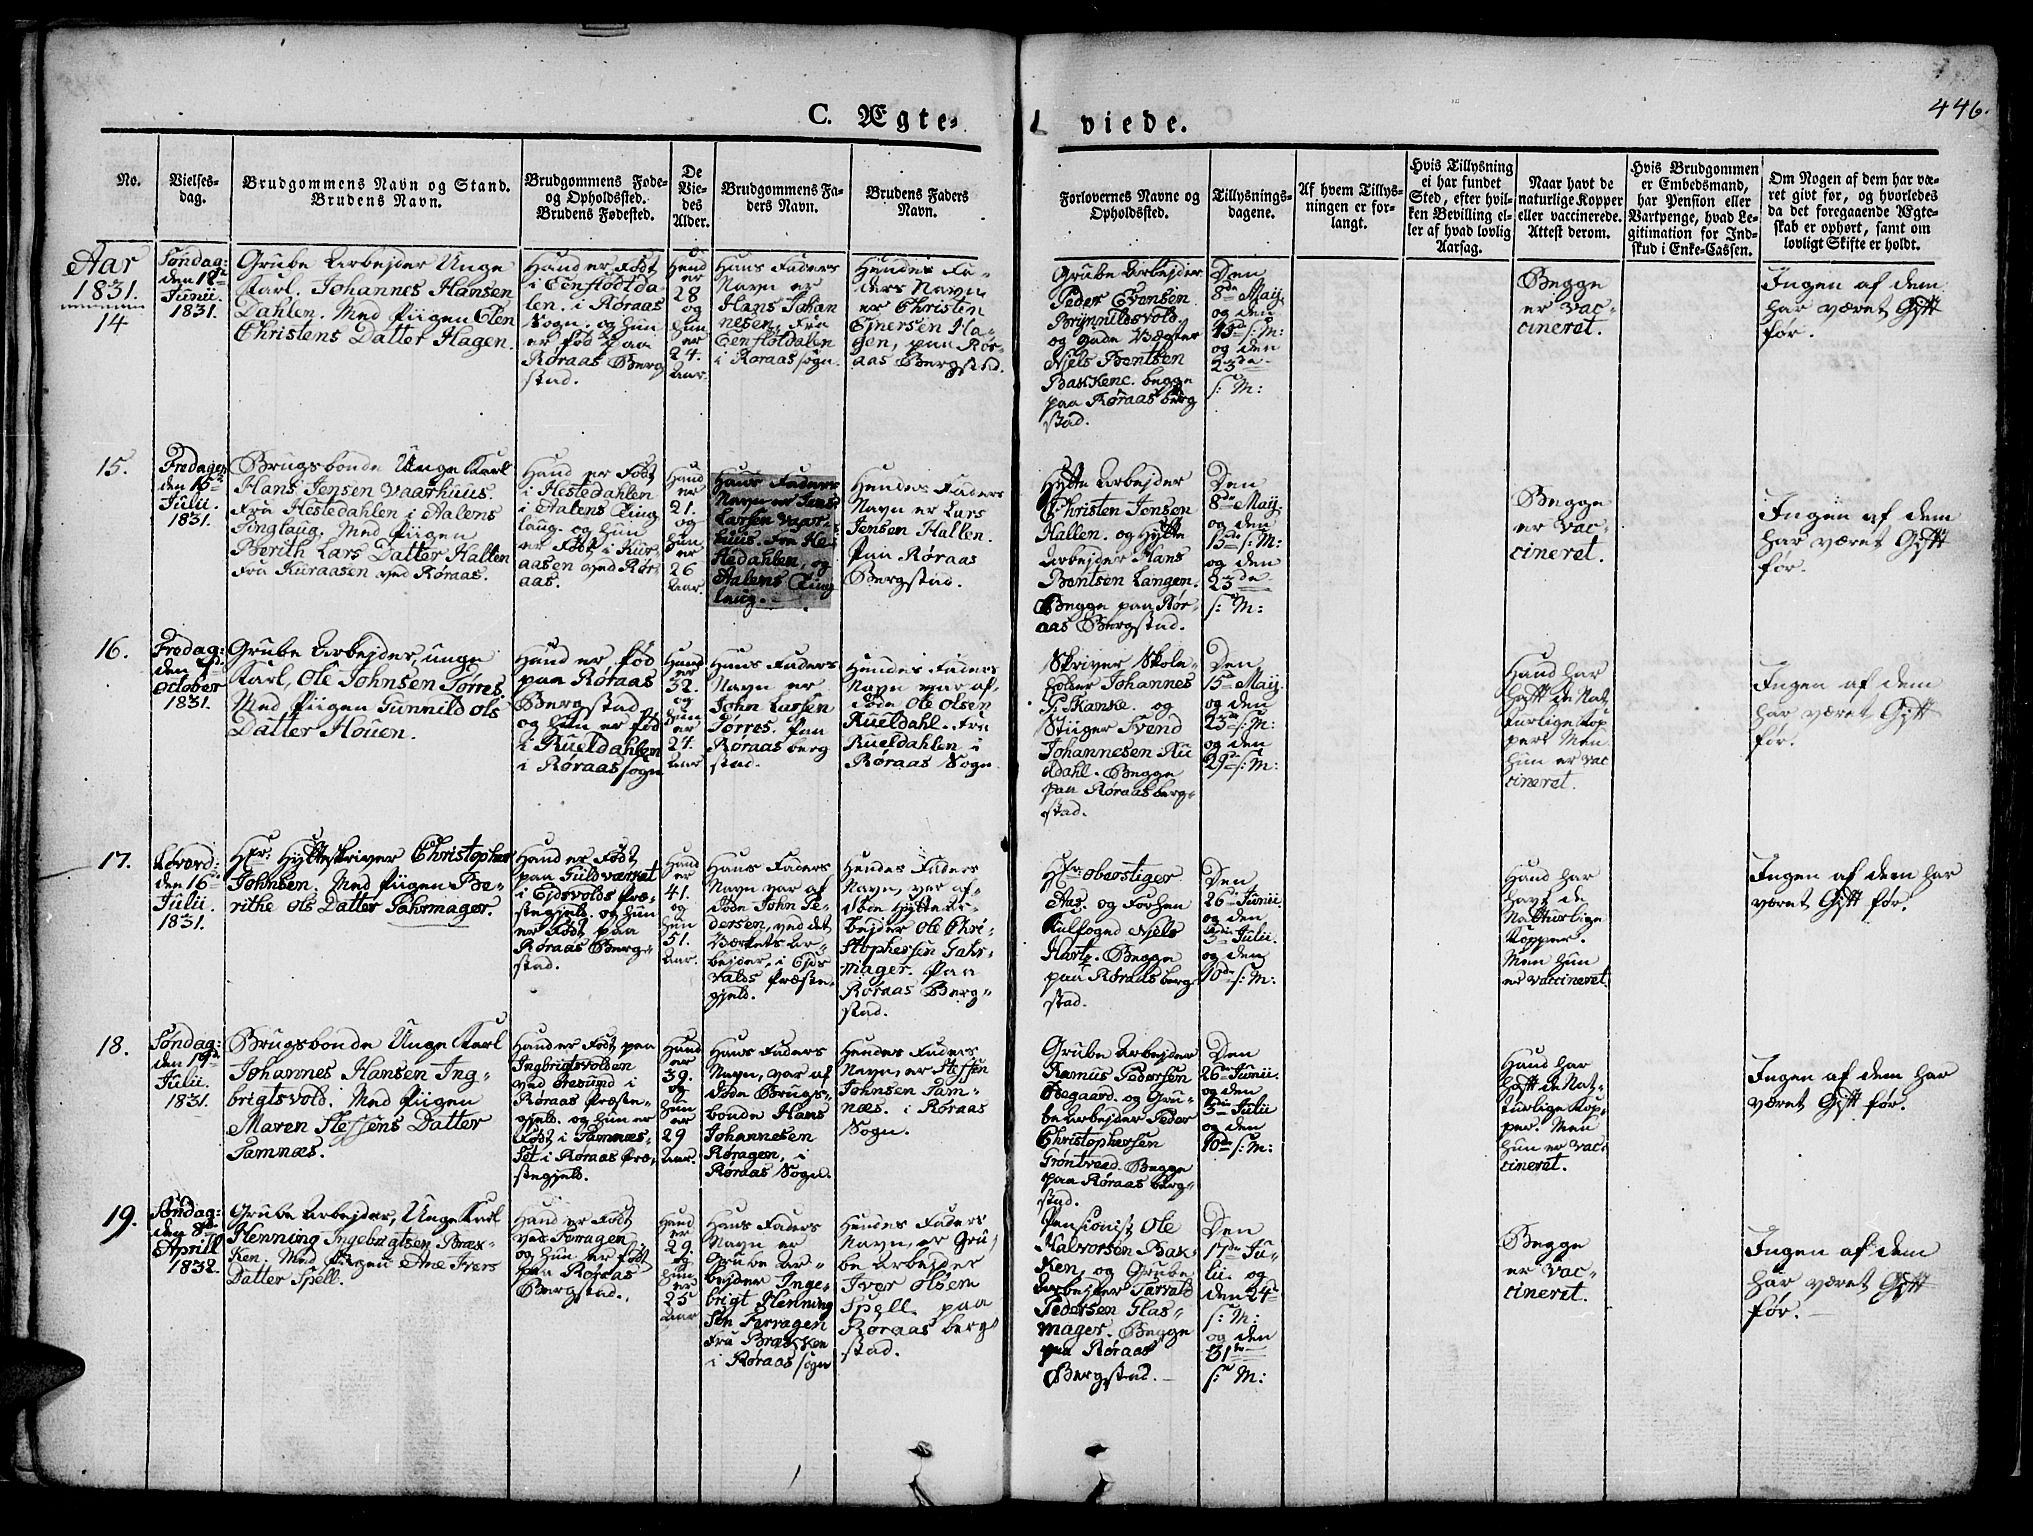 446.
C. Ægte-
viede.
No.
Vielses-
dag.
Brudgommens Navn og Stand.
Brudens Navn.
Brudgommens Føde-
og Opholdssted.
Brudens Fødested.
De
Vie-
des
Alder.
Brudgommens Fa-
ders Navn.
Brudens Faders
Navn.
Forlovernes Navne og
Opholdssted.
Tillysnings-
dagene.
Af hvem Tillys-
ningen er for-
langt.
Hvis Tillysning
ei har fundet
Sted, efter hvil-
ken Bevilling el-
ler af hvad lovlig
Aarsag.
Naar havt de
naturlige Kopper
eller vaccinerede.
Attest derom.
Hvis Brudgommen
er Embedsmand,
har Pension eller
Vartpenge, hvad Le-
gitimation for Ind-
skud i Enke-Cassen.
Om Nogen af dem har væ-
ret givt før, og hvorledes
da det foregaaende Ægte-
skab er ophørt, samt om
lovligt Skifte er holdt.
Aar
1831.
14
Søndag:
den
Junii.
1831.
Grube Arbejder Unge
Karl. Johannes Hansen
Dahlen. Med Piigen Elen
Christens Datter Hagen.
Hand er Født
i Eenflodda-
len. i Røraas
Sogn. og hun
er fød paa
Røraas Berg
stad.
Hand
er
28
og
hun
er
24.
Aar.
Hans Faders
Navn er
Hans Johan
nesen. fra
Eenfloddalen
i Røraas sogn.
Hendes Fa-
ders Navn
er Christen
Ejnersen Ha-
gen, paa Rør-
aas Bergstad.
Grube Arbejder
Peder Evensen
Brynnildsvold
og Gade Vægter
Njels Bentsen
Bakkene. begge
paa Røraas berg
stad.
Den
8de May.
og den
13de s: M:
og den
23de
s: M:
Begge
er Vac-
cineret.
Ingen af dem
har været Gift
før.
15.
Fredagen
den 15de
Julii.
1831.
Brugsbonde Unge Karl
Hans Jensen Vaarhuus.
fra Hestedahlen i Aalens
Tinglaug. Med Piigen
Berith Lars Datter Hallen
fra Kuraasen ved Røraas.
Hand er Født
i Hestedahlen
i Aalens Ting
laug. og hun
er Født i Kur-
aasen ved Rør-
aas.
Hand
er
21.
og
hun
er
26
Aar.
Hans Faders
Navn er Jens
Larsen Vaar-
huus. fra He-
stedahlen, og
Aalens Ting
laug.
Hendes Faders
Navn er Lars
Jensen Hallen.
Paa Røraas
Bergstad.
Hytte Arbejder
Christen Jensen
Hallen. og Hytte
Arbejder Hans
Bentsen Langen.
Begge paa Rør-
aas Bergstad.
Den
8de May.
og den
13de s: M:
og den
23de
s: M:
Begge
er Vac-
cineret.
Ingen af dem
har været Gift
før.
16.
Fredag:
den
October
1831.
Grube Arbejder, unge
Karl, Ole Johnsen Tørres.
Med Piigen Gunnild Ols
Datter Houen.
Hand er fød
paa Røraas
Bergstad
og hun er fød
i Rueldahlen
i Røraas sogn
Hand
er
32.
og
hun
er
24.
Aar
Hans Faders
Navn er
John Larsen
Tørres. Paa
Røraas berg
stad.
Hendes Faders
Navn var af-
døde Ole Olsen
Rueldahl. fra
Rueldahlen i
Røraas Sogn.
Skriver Skole-
Holder Johannes
G: Skanke. og
Stiiger Svend
Johannesen Ru
eldahl. Begge
paa Røraas berg-
stad.
Den
15de May.
og den
23de s: M:
og den
29de s: M:
Hand har
haft de Nat-
turlige Kop
per. Men
hun er vac
cineret.
Ingen af dem
har været Gift
før.
17.
Løverd:
den 16de
Julii.
1831.
Hr: Hytteskriver Christopher
Johnsen. Med Piigen Be-
rithe Ols Datter Gahrmager.
Hand er Født
paa Guldværket
i Ejdsvolds Præ-
stegjeld. og hun
er Født paa
Røraas Berg-
stad.
Hand
er
41.
og
hun
51.
Aar.
Hans Faders
Navn var af
døde John Pe-
dersen, ved det
Værkets Ar-
bejder, i Ejds
Valds Præste-
gjeld.
Hendes Faders
Navn, var af-
døde Hytte Ar-
bejder Ole Chri-
stophersen Gahr-
mager. Paa
Røraas Berg-
stad.
Hr: Oberstiger
Aas. og Forhen
Kulfoged Njels
Hart. Begge
paa Røraas berg
stad.
Den
26de Junii.
og den
3die Julii.
og den
10de s: M:
Hand har
havt de
Natturlige
Kopper.
Men hun
er vaccineret.
Ingen af dem har
været Gift før.
18.
Søndag:
den
Julii.
1831.
Brugsbonde Unge Karl
Johannes Hansen Ing-
brigtsvold. Med Piigen
Maren Steffens Datter
Tamnæs.
Hand er Født paa
Ingbrigtsvolden
ved Øresund i
Røraas Præste-
gjeld. og hun er
Født i Tamnæs-
set i Røraas Præ-
stegjeld.
Hand
er
39.
og
hun
er
29
Aar.
Hans Faders
Navn, var af
døde Brugs-
bonde Hans
Johannesen
Røragen, i
Røraas Sogn.
Hendes Faders
Navn, er Steffen
Johnsen Tam-
næs. i Røraas
Sogn.
Grube Arbejder
Rasmus Pedersen
Aasgaard. og Gru-
be Arbejder Peder
Christophersen
Grøntvead. Begge
paa Røraas Berg-
stad.
Den
26de Junii.
og den
3die Julii
og den
10de s: M:
Hand har
haft de Nat-
turlige Kop-
per. Men
hun er vac-
cineret.
Ingen af dem har
været Gift før.
19.
Søndag:
den 8de
Aprill
1832.
Grube Arbejder, Unge Karl
Henning Ingebrigtsen Bræk-
ken. Med Piigen Ane Ivers
Datter Spell.
Hand er Født
ved Feragen
og hun er født
paa Røraas
Bergstad.
Hand
er
29.
og
hun
er
25
Aar
Hans Faders
Navn er
Grube Ar-
bejder Inge-
brigt Henning
sen Ferragen
fra Brækken
i Røraas sogn
Hendes Faders
Navn, er Gru
be Arbejder
Iver Olsen
Spell. paa
Røraas berg
stad.
Pensionist Ole
Halvorsen Bak-
ken, og Grube
Arbejder Tarrald
Pedersen Glas-
mager. Begge
paa Røraas
Bergstad.
Den
17de Ju-
lii. og
den 24de
s: M:
og den
31te
s: M:
Begge
er Vac-
cineret.
Ingen af dem
har været Gift
før.